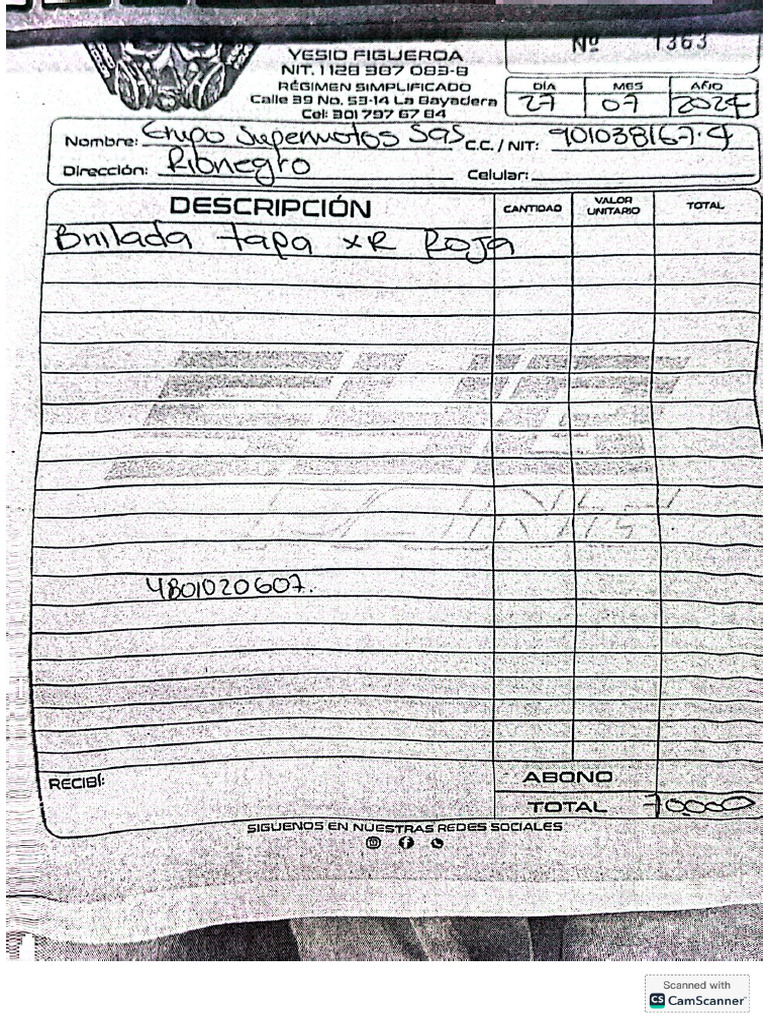 Nº 1363
YESID FIGUEROA
NIT. 1128 387 083-8
RÉGIMEN SIMPLIFICADO
Calle 39 No. 53-14 La Bayadera
Cel: 301 797 67 84
DÍA MES AÑO
27 07 2024
Nombre: Grupo Supermotos SaS C.C. / NIT: 901038167-4
Dirección: Rionegro Celular:
DESCRIPCIÓN CANTIDAD VALOR UNITARIO TOTAL
Brillada tapa XR Roja
4801020607.
RECIBÍ: ABONO
TOTAL 70.000
SIGUENOS EN NUESTRAS REDES SOCIALES
Scanned with
CS CamScanner